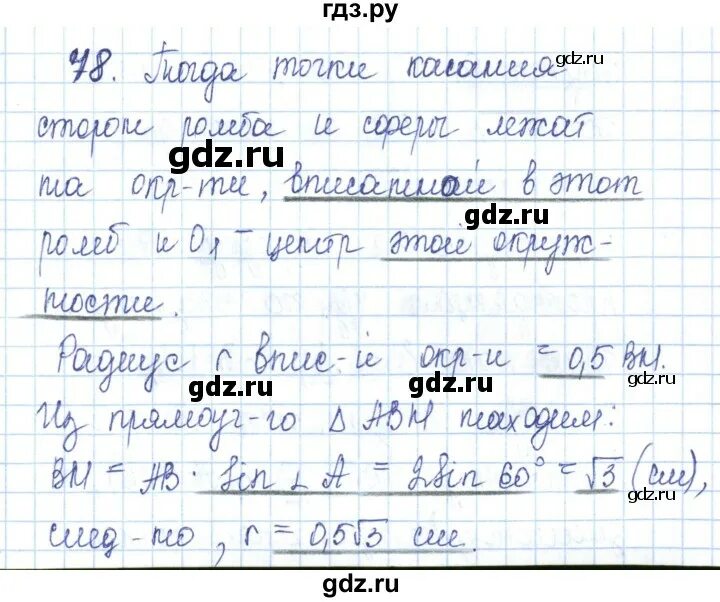 гдз.ру
78. Тогда точки касания
gdz.ru
сторон ромба и сферы лежат
gdz.ru
на окр-ти, вписанной в этот
gdz.ru
ромб и O₁ – центр этой окруж-
ности.
gdz.ru
Радиус r впис-й окр-и = 0,5 BH.
gdz.ru gdz.ru gdz.ru
Из прямоуг-го Δ ABH находим:
BH = AB · Sin ∠ A = 2Sin 60° = √3 (см),
gdz.ru
след-но, r = 0,5√3 см.
gdz.ru
gdz.ru
гдз.ру